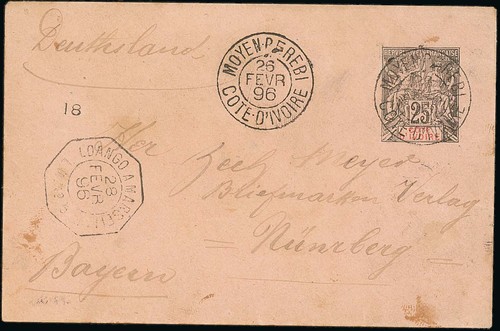 Deuthsland
MOYEN-PEREBI
26
FEVR
96
COTE-D'IVOIRE
REPUBLIQUE FRANÇAISE
25
18
LOANGO A MARSEI
28
FEVR
96
Her
Meyer
Briefmarken Verlag
= Nürnberg =
Bayern